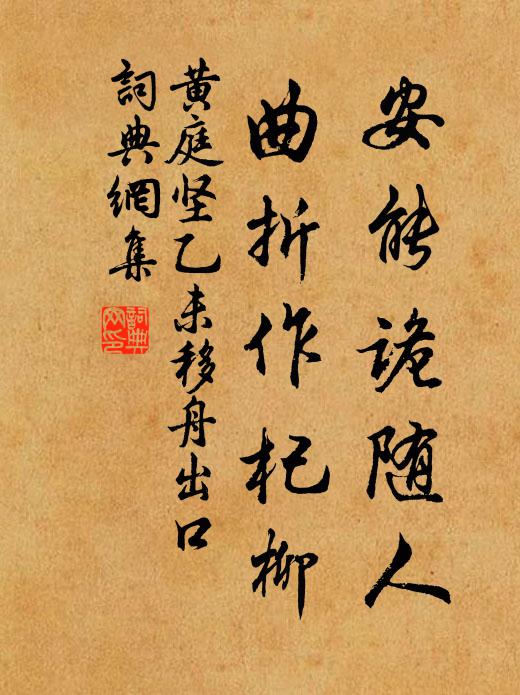 安能詭随人
曲折作杞柳
黄庭坚乙未移舟出口
詞典網集
詞典
网印